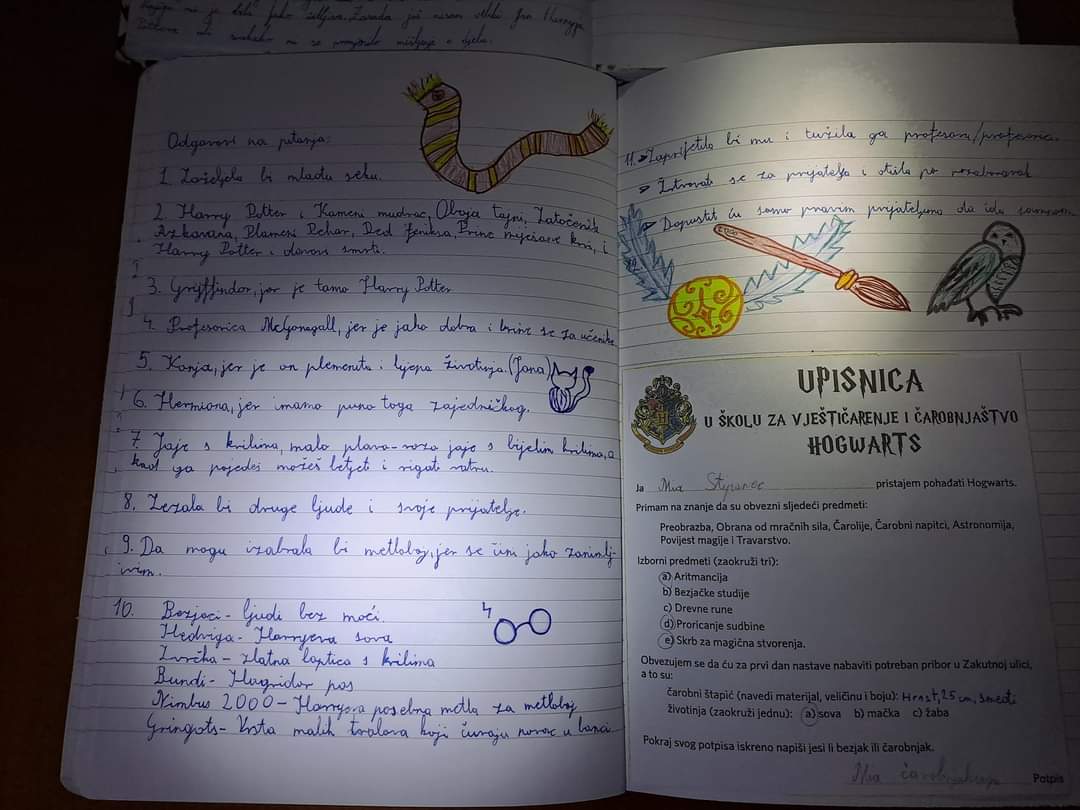 Harryja
Odgovori na pitanja:
1. Zaželjela bi mlađu seku.
2. Harry Potter i Kamen mudraca, Odaja tajni, Zatočenik
Azkabana, Plameni Pehar, Red feniksa, Princ miješane krvi, i
Harry Potter i darovi smrti.
3. Gryffindor, jer je tamo Harry Potter
4. Profesorica McGonagall, jer je jako dobra i brine se za učenike
5. Konja, jer je on plemenita i lijepa životinja. (Jana)
6. Hermiona, jer imamo puno toga zajedničkog.
7. Jaje s krilima, malo plavo-rozo jaje s bijelim krilima, a
kad ga pojedeš možeš letjeti i rigati vatru.
8. Zezala bi druge ljude i svoje prijatelje.
9. Da mogu izabrala bi metloboj, jer se čini jako zanimlj-
ivim.
10. Bezjaci - ljudi bez moći.
Hedviga - Harryeva sova
Zvrčka - zlatna loptica s krilima
Bundi - Hagridov pas
Nimbus 2000 - Harryeva posebna metla za metloboj
Gringots - Vrsta malih trolova koji čuvaju novac u banci
11. Zaprijetila bi mu i tužila ga profesoru/profesorici.
Žrtvovati se za prijatelja i otišla po
Dopustit ću samo pravim prijateljima da idu samnom
UPISNICA
U ŠKOLU ZA VJEŠTIČARENJE I ČAROBNJAŠTVO
HOGWARTS
Ja Mia Stypanec pristajem pohađati Hogwarts.
Primam na znanje da su obvezni sljedeći predmeti:
Preobrazba, Obrana od mračnih sila, Čarolije, Čarobni napitci, Astronomija,
Povijest magije i Travarstvo.
Izborni predmeti (zaokruži tri):
a) Aritmancija
b) Bezjačke studije
c) Drevne rune
d) Proricanje sudbine
e) Skrb za magična stvorenja.
Obvezujem se da ću za prvi dan nastave nabaviti potreban pribor u Zakutnoj ulici,
a to su:
čarobni štapić (navedi materijal, veličinu i boju): Hrast, 25 cm, smeđi
životinja (zaokruži jednu): a) sova b) mačka c) žaba
Pokraj svog potpisa iskreno napiši jesi li bezjak ili čarobnjak.
Mia čarobnjakinja Potpis